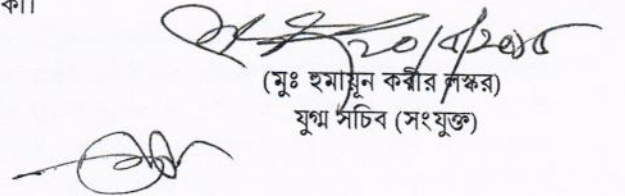 কা।
২০/৫/২০১৫
(মুঃ হুমায়ূন কবীর লস্কর)
যুগ্ম সচিব (সংযুক্ত)